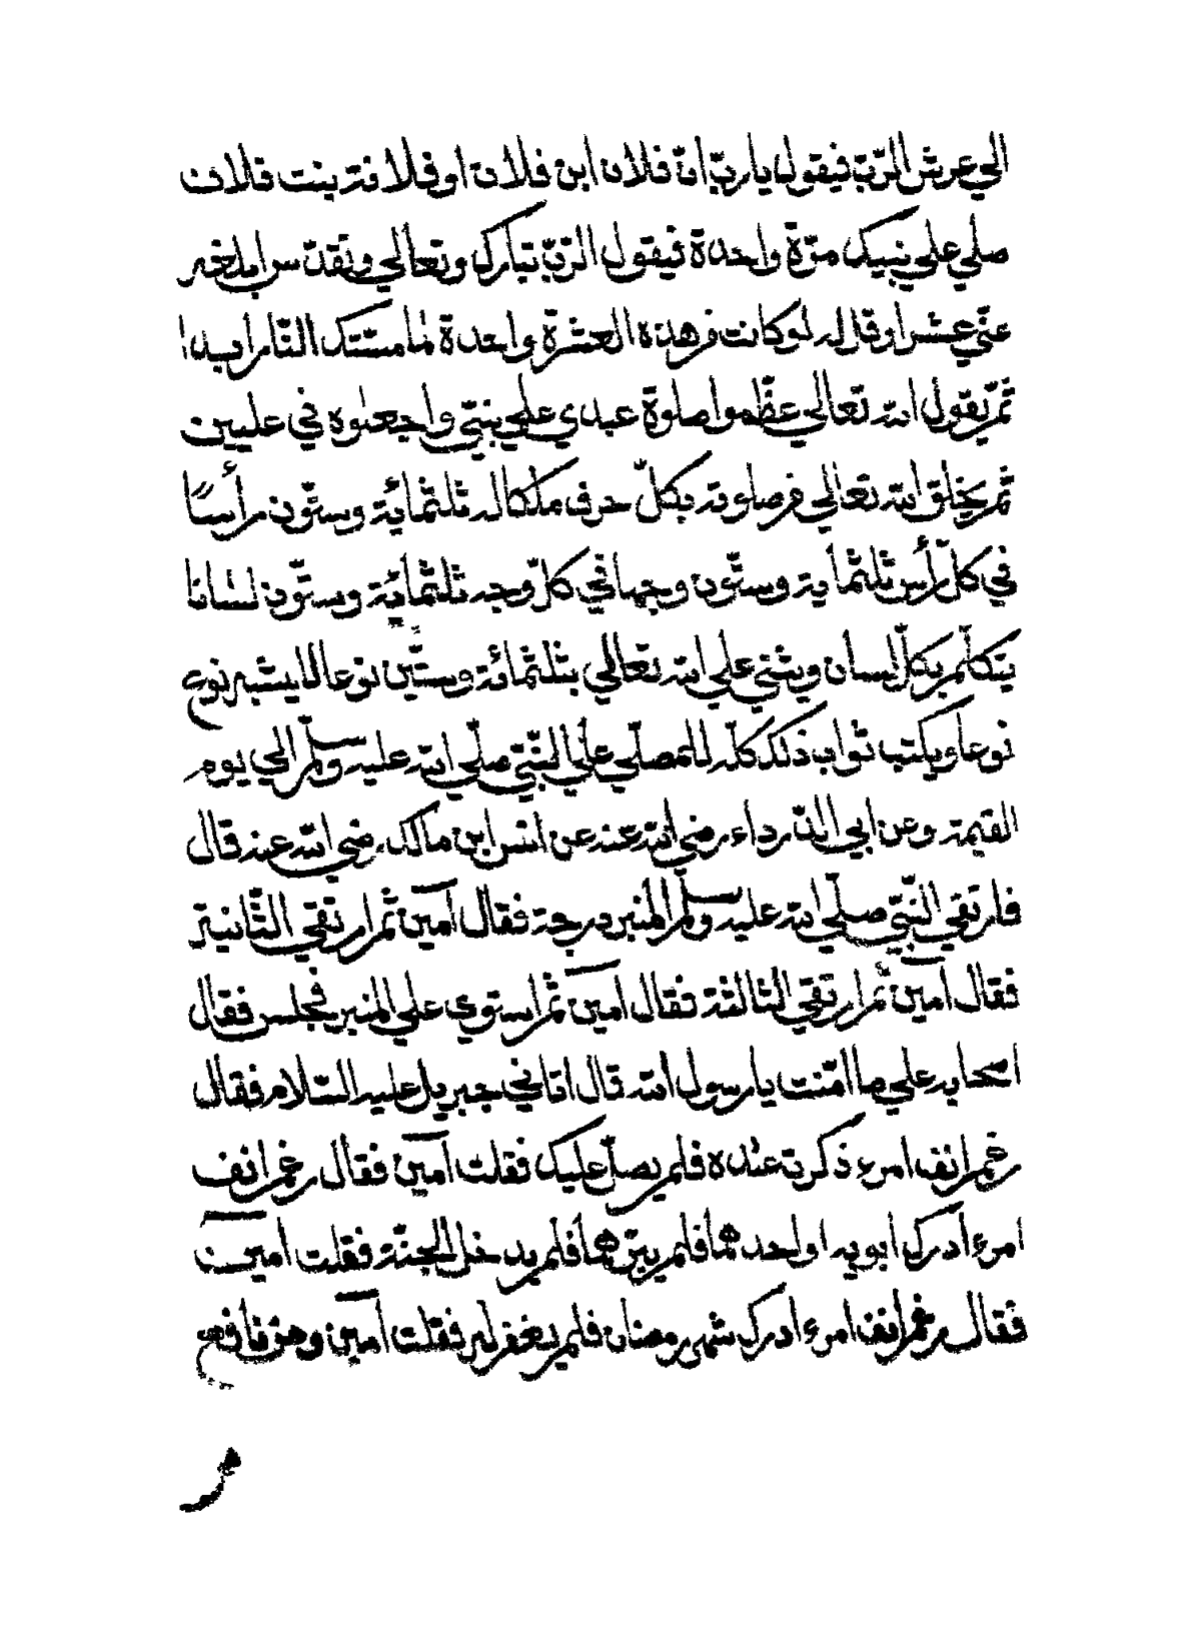 الي عرش الرّبّ فيقول يا ربّ انّ فلان ابن فلان او فلانة بنت فلان
صلي علي نبيك مرّة واحدة فيقول الرّبّ تبارك وتعالي وتقدّس ابلغه
عنّي عشرا وقل له لو كانت من هذه العشرة واحدة لما مستك النّار ابدا
ثمّ يقول الله تعالي عظّموا صلوة عبدي علي نبيّي واجعلوه في عليين
ثمّ يخلق الله تعالي من صلوته بكلّ حرف ملكا له ثلثمائة وستّون رأسًا
في كلّ رأس ثلثماية وستّون وجها في كلّ وجه ثلثمائة وستّون لسانا
يتكلّم بكلّ لسان ويثني علي الله تعالي بثلثمائة وستّين نوعا لا يشبه نوع
نوعا ويكتب ثواب ذلك كلّه للمصلّي علي النّبيّ صلّي الله عليه وسلّم الي يوم
القيمة وعن ابي الدّرداء رضي الله عنه عن انس ابن مالك رضي الله عنه قال
فارتقي النّبيّ صلّي الله عليه وسلّم المنبر درجة فقال آمين ثمّ ارتقي الثّانية
فقال آمين ثمّ ارتقي الثالثة فقال آمين ثمّ استوي علي المنبر فجلس فقال
اصحابه علي ما امّنت يا رسول الله قال اتاني جبريل عليه السّلام فقال
رغم انف امرء ذكرت عنده فلم يصلّ عليك فقلت آمين فقال رغم انف
امرء أدرك ابويه او احدهما فلم يبرّهما فلم يدخل الجنّة فقلت آمين
فقال رغم انف امرء ادرك شهر رمضان فلم يغفر له فقلت آمين وهو فافهم